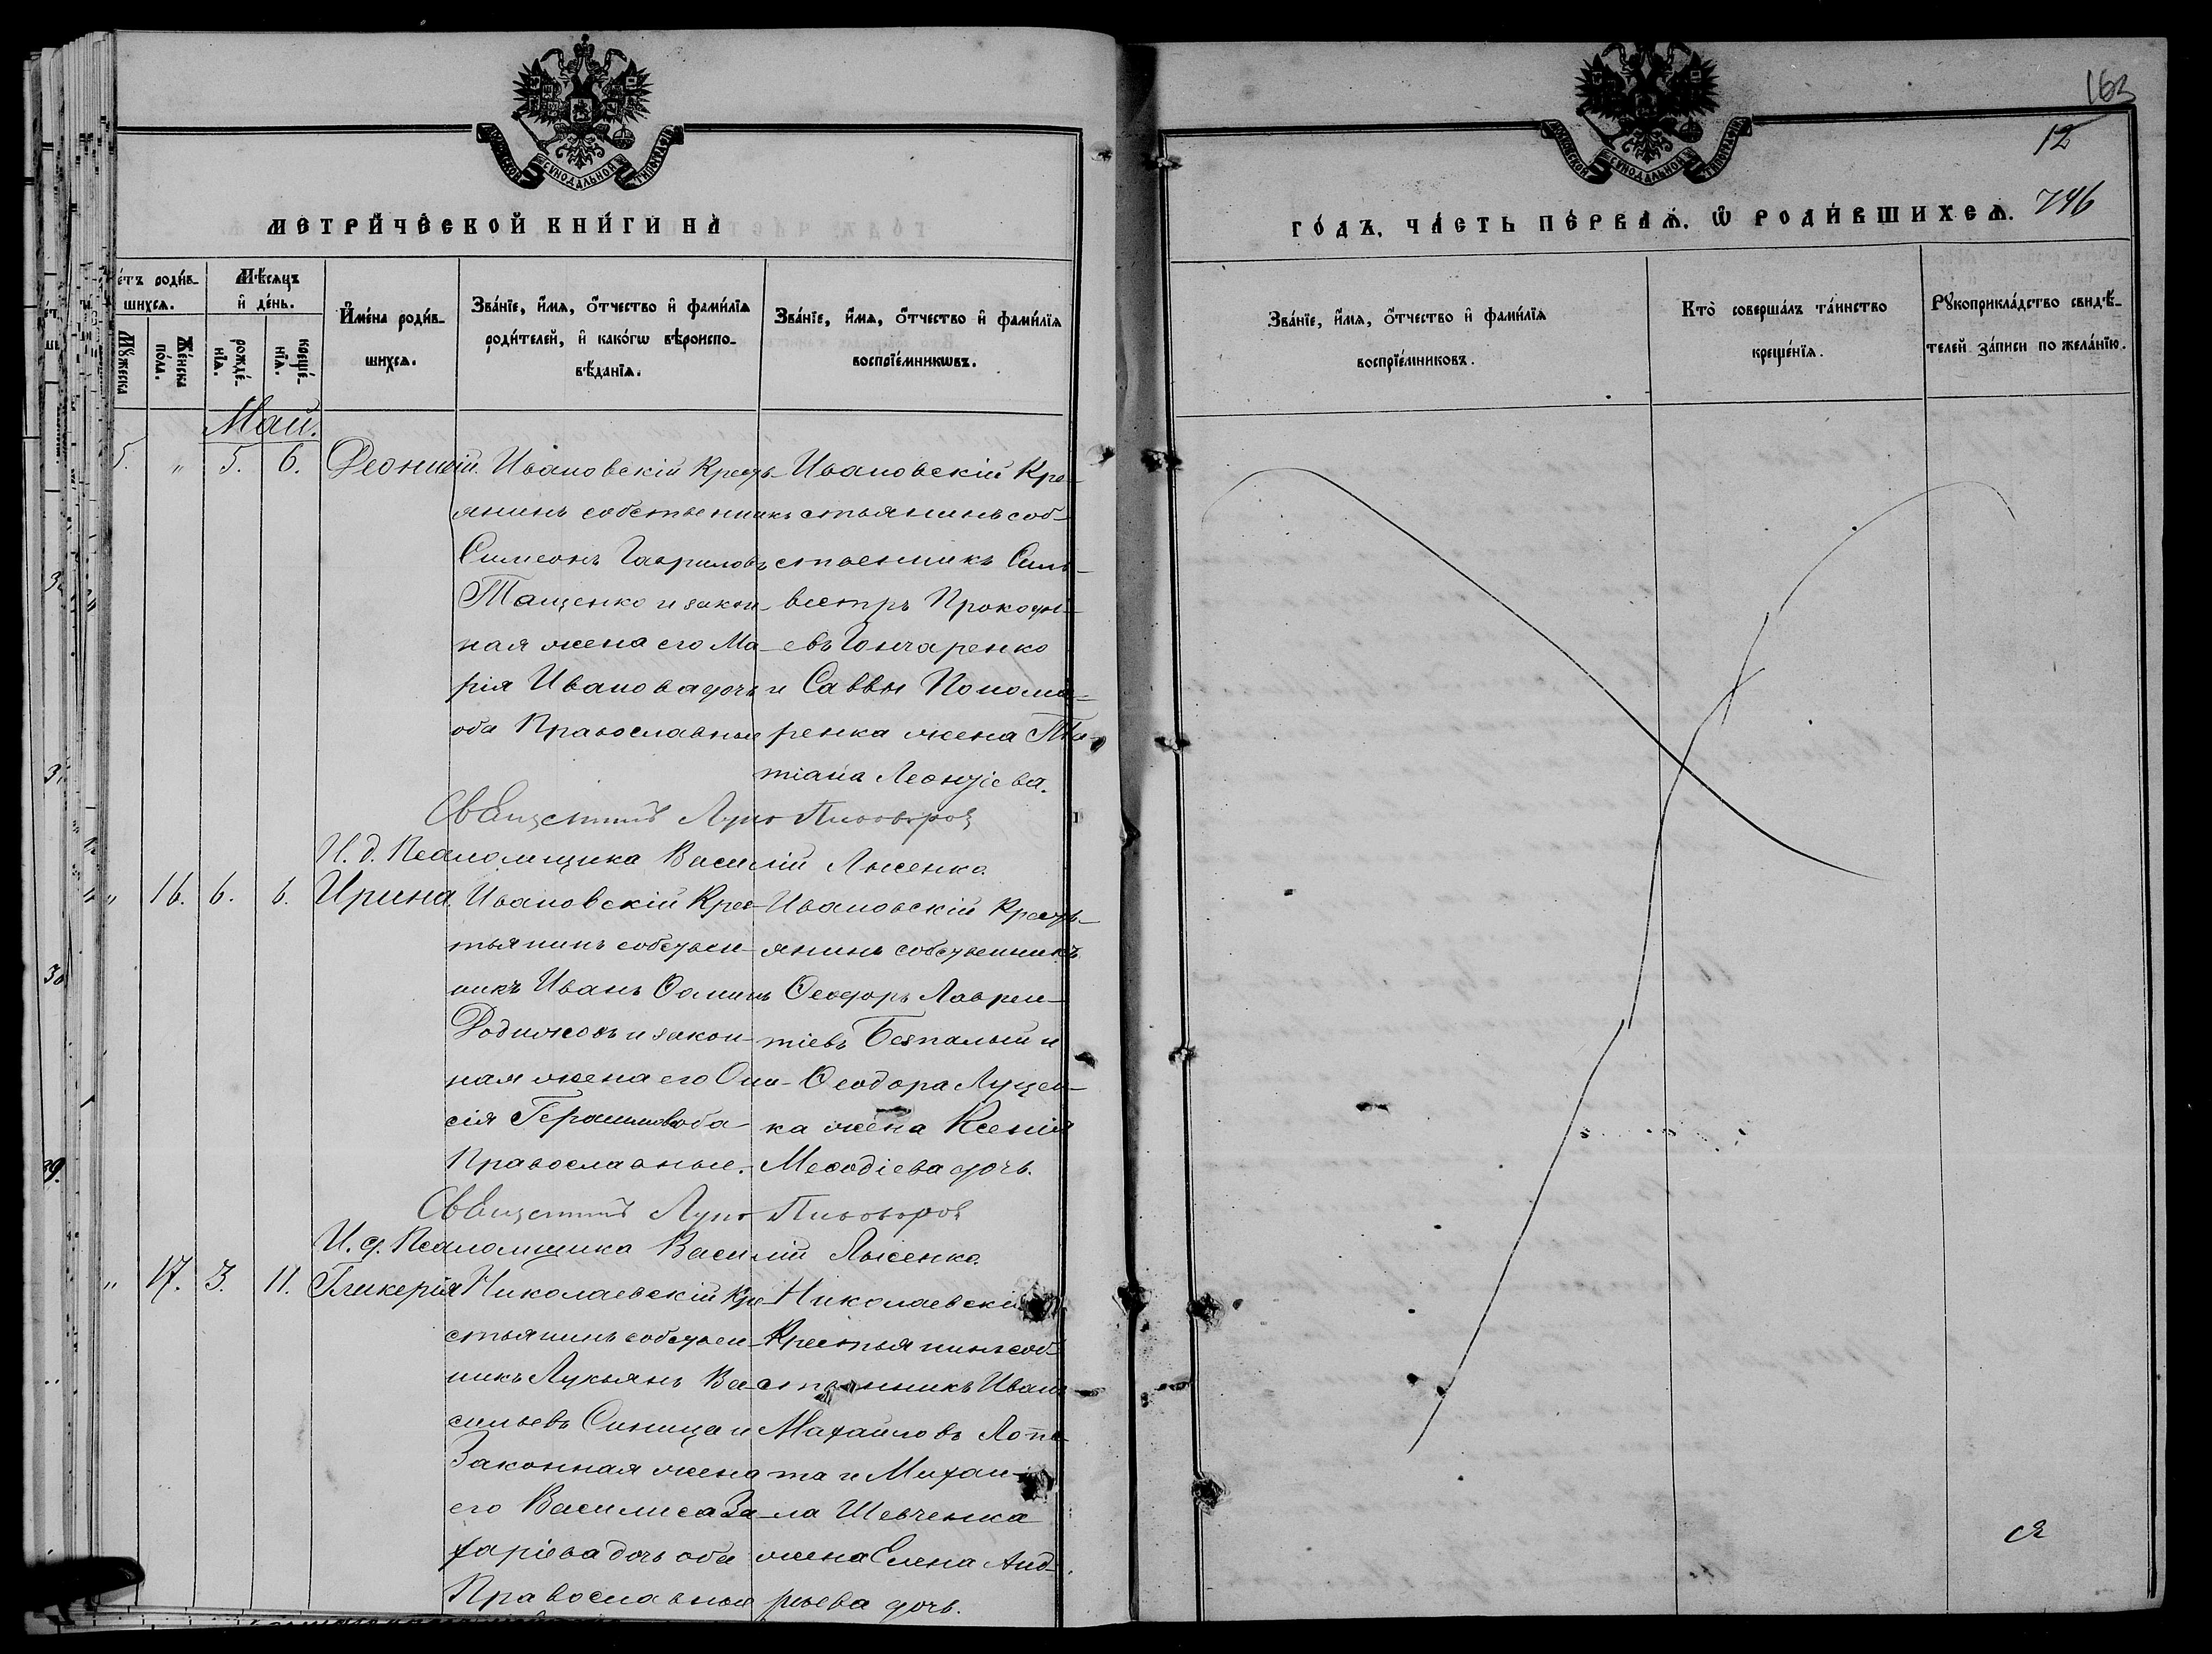 МОСКОВСКОЙ СѴНОДАЛЬНОЙ ТИПОГРАФІИ
МЕТРИ́ЧЕСКОЙ КНИ́ГИ НА̀
е́тъ роди́в-
шихсѧ.
Мѣ́сѧцъ
и҆ де́нь.
Мꙋ́жеска
Же́нска
по́ла.
рожде́-
нїѧ.
креще́-
нїѧ.
И҆мена̀ роди́в-
шихсѧ.
Зва́нїе, и҆́мѧ, ѻ҆́тчество и҆ фами́лїѧ
роди́телей, и҆ како́гѡ вѣроиспо-
вѣ́данїѧ.
Зва́нїе, и҆́мѧ, ѻ҆́тчество и҆ фами́лїѧ
воспрїе́мникѡвъ.
Май.
5. " 5. 6.
Ивановскій Кресть-
янинъ собственникъ
Симеонъ Гавриловъ
Тащенко и закон-
ная жена его Ма-
рія Иванова дочь
оба Православные
Ивановскій Кре-
стьянинъ соб-
ственникъ Силь-
вестръ Прокофі-
евъ Гончаренко
и Саввы Понома-
ренка жена Та-
тіана Леонтіева.
Священникъ Лука Пивоваров
И. д. Псаломщика Василій Лысенко.
" 16. 6. 6. Ирина.
Ивановскій Крес-
тьянинъ собствен-
никъ Иванъ Ѳоминъ
и закон-
ная жена его Они-
сія оба
Православные.
Ивановскій Кресть-
янинъ собственникъ
Ѳеодоръ Лаврен-
тіевъ Безпалый и
Ѳеодора Луцен-
ка жена Ксенія
Меѳодіева дочь.
Священникъ Лука Пивоваров
И. д. Псаломщика Василій Лысенко.
" 17. 3. 11. Гликерія
Николаевскій Кре-
стьянинъ собствен-
никъ Лукьянъ Ва-
сильевъ Синица и
Законная жена
его Василиса За-
харіева дочь оба
Православные
Николаевскій
Крестьянинъ соб-
ственникъ Иванъ
Михайловъ Лопа-
та и Михаи-
ла Шевченка
жена Елена Анд-
рѣева дочь.
163
12
746
МОСКОВСКОЙ СѴНОДАЛЬНОЙ ТИПОГРАФІИ
ГО́ДЪ, ЧА́СТЬ ПЕ́РВАѦ, Ѡ҆ РОДИ́ВШИХСѦ.
Зва́нїе, и҆́мѧ, ѻ҆́тчество и҆ фами́лїѧ
воспрїе́мниковъ.
Кто̀ соверша́лъ та́инство
креще́нїѧ.
Рꙋкоприкла́дство свидѣ́-
телей за́писи по жела́нїю.